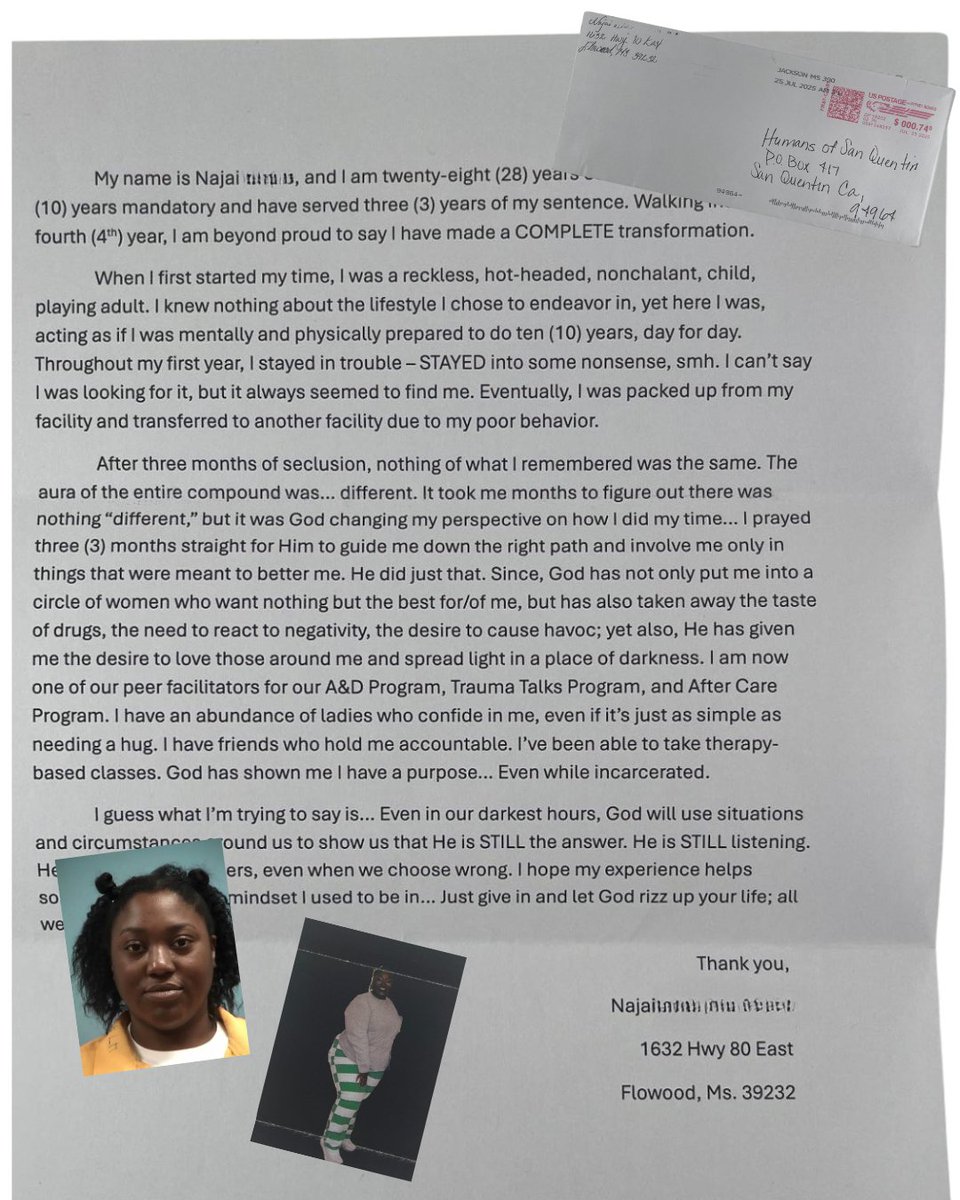 Najai
1632 Hwy 80 East
Flowood, MS 39232
JACKSON MS 390
25 JUL 2025 AM
US POSTAGE
$ 000.74⁰
Humans of San Quentin
P.O Box 417
San Quentin Ca,
94964
94964-
My name is Najai, and I am twenty-eight (28) years
(10) years mandatory and have served three (3) years of my sentence. Walking
fourth (4th) year, I am beyond proud to say I have made a COMPLETE transformation.
When I first started my time, I was a reckless, hot-headed, nonchalant, child,
playing adult. I knew nothing about the lifestyle I chose to endeavor in, yet here I was,
acting as if I was mentally and physically prepared to do ten (10) years, day for day.
Throughout my first year, I stayed in trouble – STAYED into some nonsense, smh. I can’t say
I was looking for it, but it always seemed to find me. Eventually, I was packed up from my
facility and transferred to another facility due to my poor behavior.
After three months of seclusion, nothing of what I remembered was the same. The
aura of the entire compound was... different. It took me months to figure out there was
nothing “different,” but it was God changing my perspective on how I did my time... I prayed
three (3) months straight for Him to guide me down the right path and involve me only in
things that were meant to better me. He did just that. Since, God has not only put me into a
circle of women who want nothing but the best for/of me, but has also taken away the taste
of drugs, the need to react to negativity, the desire to cause havoc; yet also, He has given
me the desire to love those around me and spread light in a place of darkness. I am now
one of our peer facilitators for our A&D Program, Trauma Talks Program, and After Care
Program. I have an abundance of ladies who confide in me, even if it’s just as simple as
needing a hug. I have friends who hold me accountable. I’ve been able to take therapy-
based classes. God has shown me I have a purpose... Even while incarcerated.
I guess what I’m trying to say is... Even in our darkest hours, God will use situations
and circumstances around us to show us that He is STILL the answer. He is STILL listening.
even when we choose wrong. I hope my experience helps
mindset I used to be in... Just give in and let God rizz up your life; all
we
Thank you,
Najai
1632 Hwy 80 East
Flowood, Ms. 39232